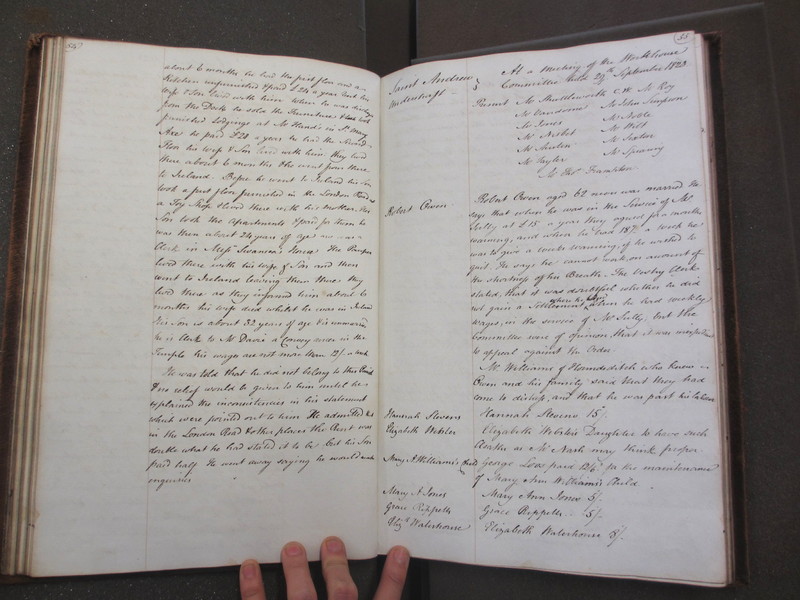 about 6 months he had the first floor and a
Kitchen unfurnished & paid £24 a year and his
wife & Son lived with him when he was
from the he sold the Furniture & took
furnished Lodgings at Mr in St Mary
Axe he paid £28 a year he had the Second
floor his wife & Son lived with him they lived
there about 6 months & he went from there
to Ireland. Before he went to Ireland his Son
took a first floor furnished in the London Road at
a Toy Shop & lived there with his Mother. His
Son took the apartments & paid for them he
was then about 24 years of age and was a
Clerk in Messrs House. The Pauper
lived there with his wife & Son and then
went to Ireland leaving them there they
lived there as they informed him about 6
months his wife died whilst he was in Ireland
his son is about 32 years of age & is unmarried
he is Clerk to Mr Davis a Conveyancer in the
Temple his wages are not more than 12/- a week
He was told that he did not belong to this Parish
& no relief would be given to him until he
explained the inconsistencies in his statement
which were pointed out to him He admitted that
in the London Road & other places the Rent was
double what he had stated it to be but his Son
paid half. He went away saying he would make
enquiries
55
Saint Andrew
Undershaft
At a meeting of the Workhouse
Committee held 29th September 1828
Present Mr Shuttleworth C.W. Mr Roy
Mr Vandome Mr John Simpson
Mr Jones Mr Noble
Mr Nisbet Mr Hill
Mr Mr Sexton
Mr Taylor Mr
Mr Frampton
Robert Owen
Robert Owen aged 62 never was married He
says that when he was in the Service of Mr
Sully at £15 a year they agreed for a months
warning, and when he had 18/- a week he
was to give a weeks warning, if he wished to
quit. He says he cannot work on account of
the shortness of his Breath. The Vestry Clerk
stated, that it was doubtful whether he did
not gain a Settlement when he had weekly
wages, in the service of Mr Sully, but the
Committee were of opinion that it was
to appeal against the Order.
Mr Williams of Houndsditch who knew
Owen and his family said that they had
come to distress, and that he was past his labour
Hannah Stevens
Hannah Stevens 15/-
Elizabeth Webster
Elizabeth Webster's Daughter to have such
Clothes as Mr Nash may think proper
Mary A Williams's Child
George Lose paid 12/6 for the maintenance
of Mary Ann Williams's Child
Mary A Jones
Mary Ann Jones 5/-
Grace Rippell
Grace Rippell 5/-
Elizth Waterhouse
Elizabeth Waterhouse 8/-